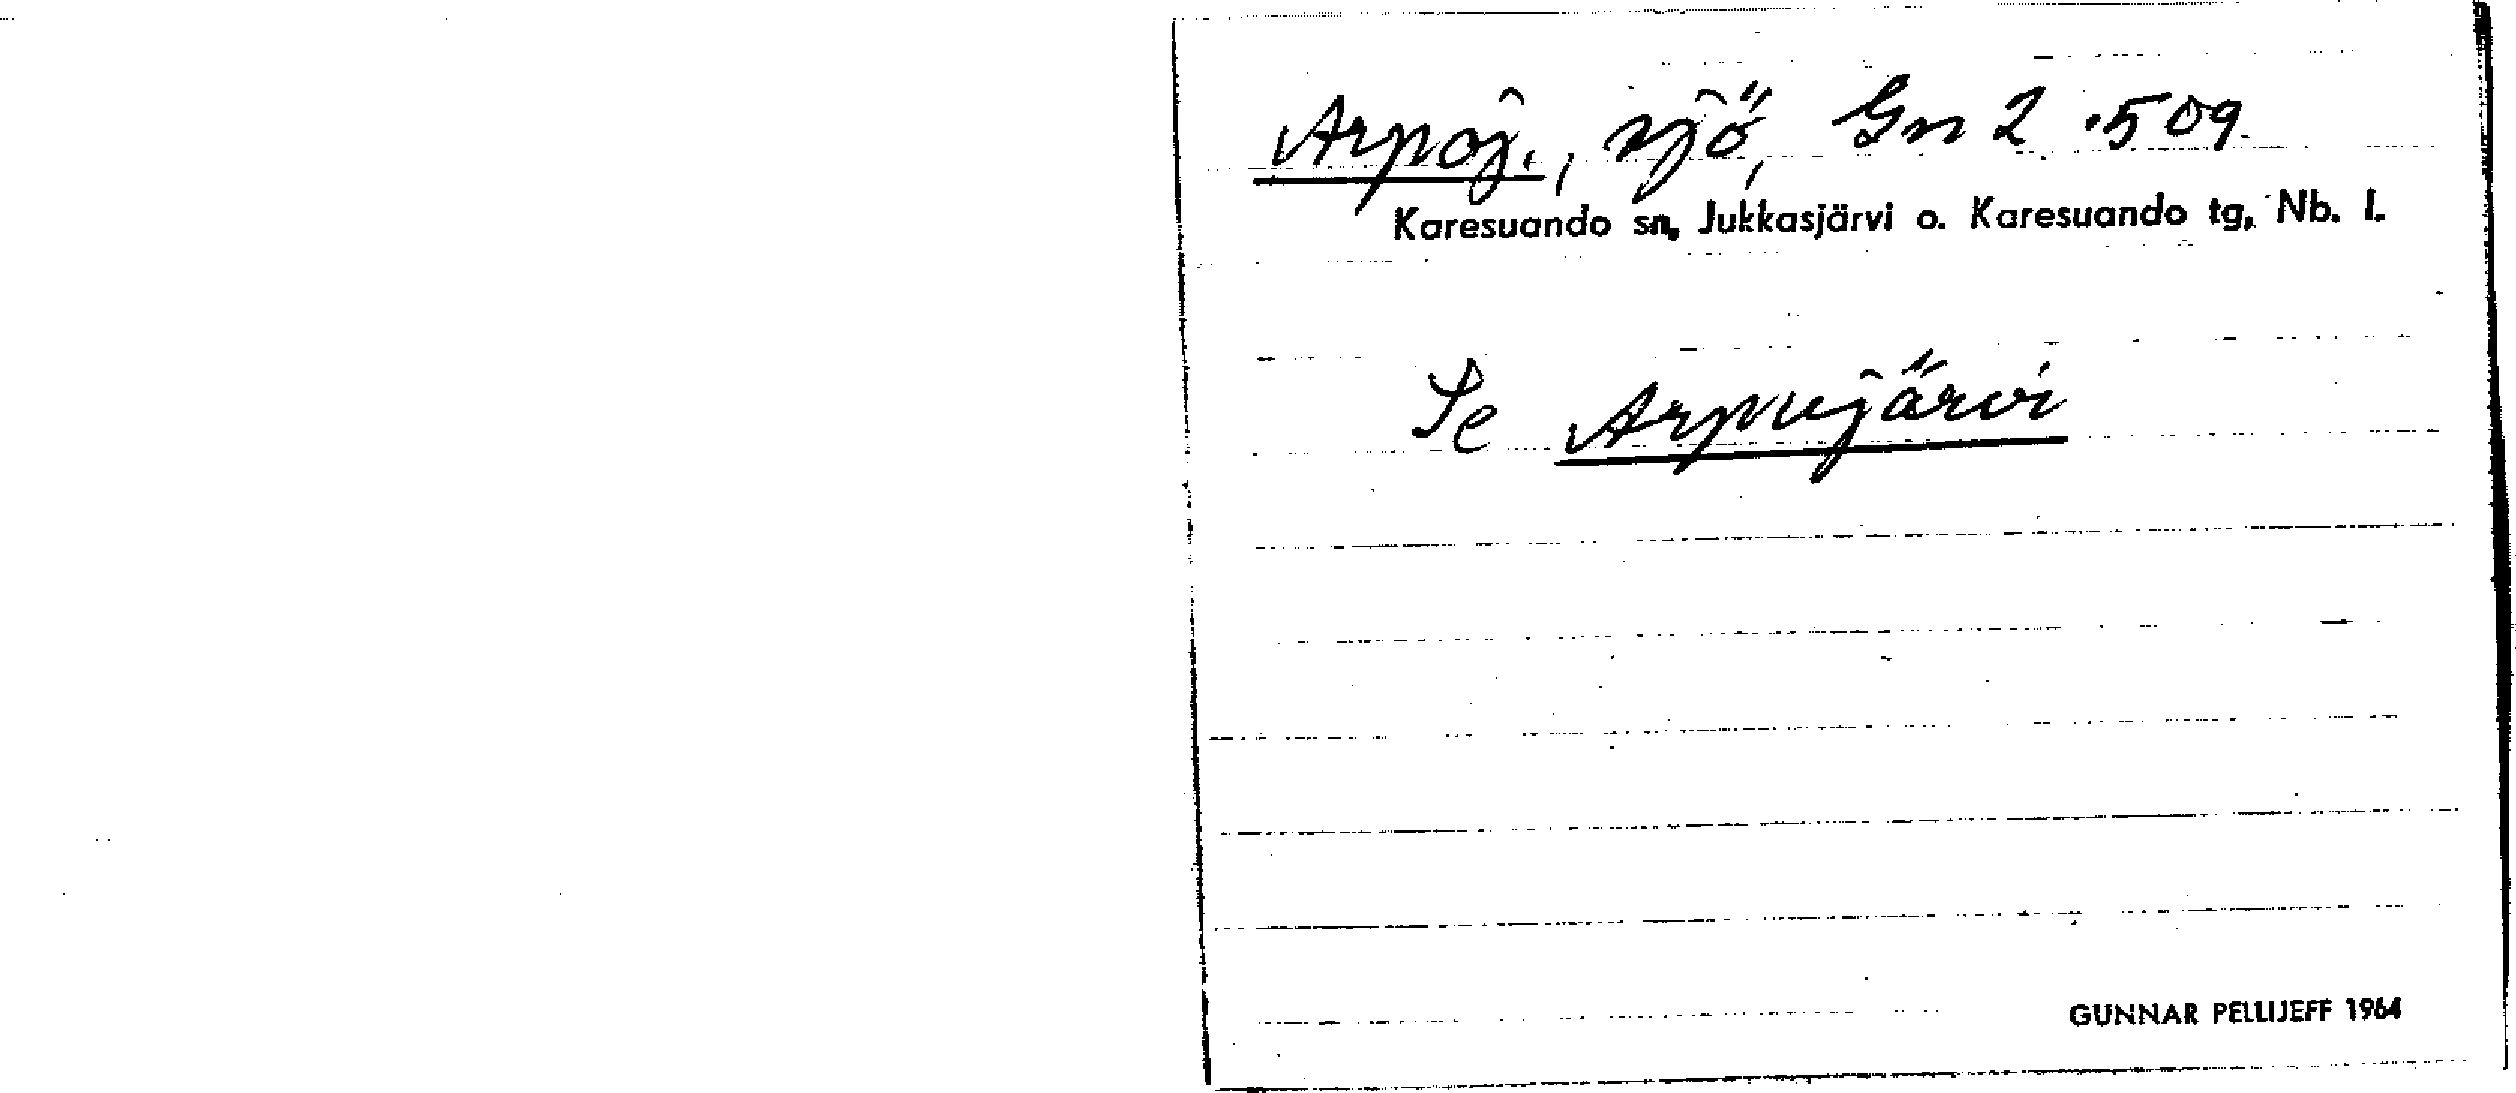 Arpoj., sjö, Gn 2 .509
Karesuando sn, Jukkasjärvi o. Karesuando tg, Nb. l.
Se Arpujärvi
GUNNAR PELLIJEFF 1964